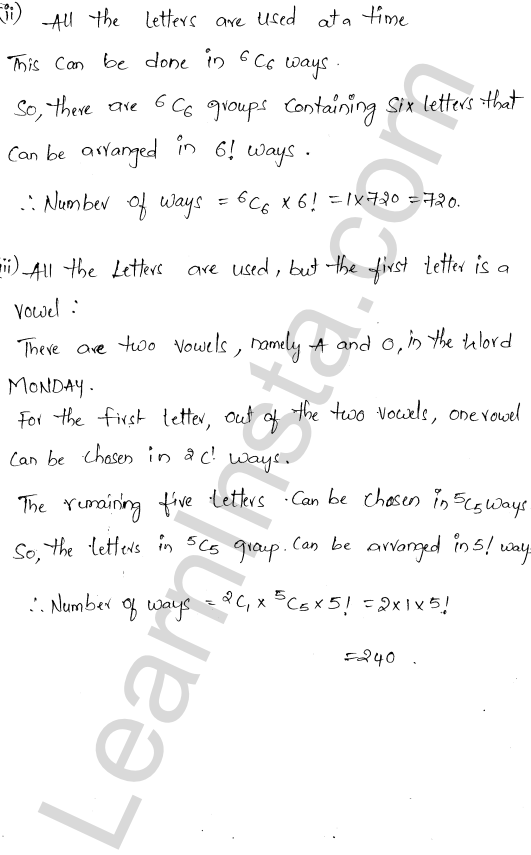 (ii) All the letters are used at a time
This can be done in ⁶C₆ ways.
So, there are ⁶C₆ groups containing six letters that
can be arranged in 6! ways.
∴ Number of ways = ⁶C₆ × 6! = 1×720 = 720.
ii) All the Letters are used, but the first letter is a
vowel :
There are two vowels, namely A and O, in the word
MONDAY.
For the first letter, out of the two vowels, one vowel
can be chosen in 2C¹ ways.
The remaining five letters can be chosen in ⁵C₅ ways
So, the letters in ⁵C₅ group. Can be arranged in 5! way
∴ Number of ways = ²C₁ × ⁵C₅ × 5! = 2×1×5!
=240 .
LearnInsta.com